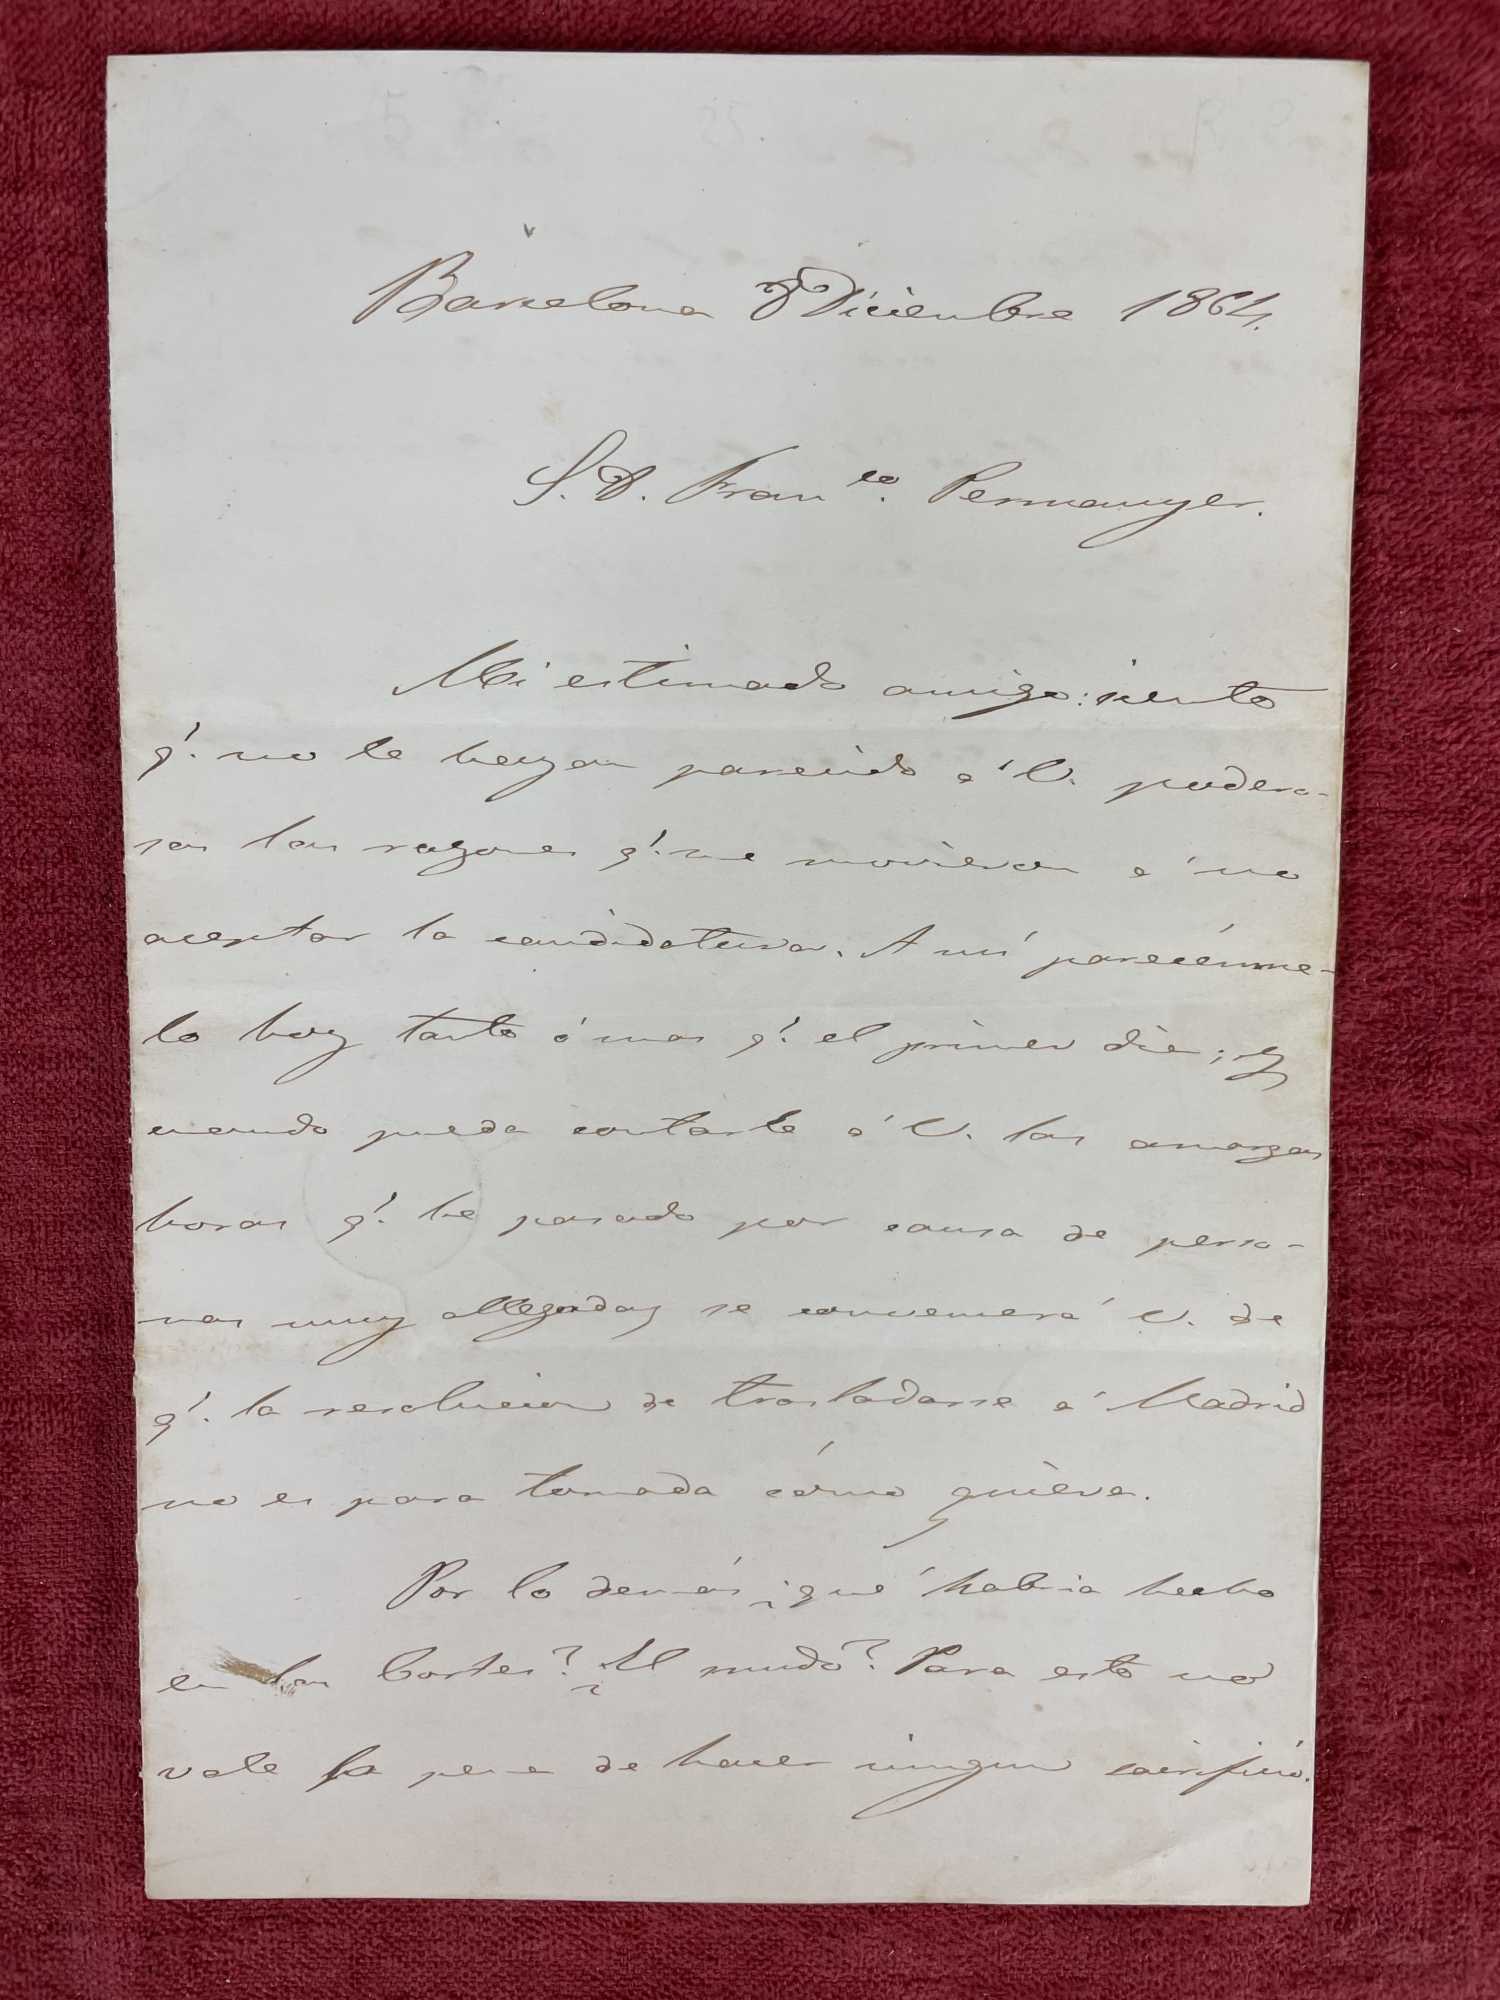 Barcelona 8 Diciembre 1864.
S. D. Fran.co Permanyer.
Mi estimado amigo: siento
q.' no le hayan parecido á V. podero-
sas las razones q.' me movieron á no
aceptar la candidatura. A mí parécenme-
lo hoy tanto ó mas q.' el primer dia; y
cuando pueda contarle á V. las amargas
horas q.' he pasado por causa de perso-
nas muy allegadas se convencerá V. de
q.' la resolucion de trasladarse á Madrid
no es para tomada cómo quiera.
Por lo demás ¿qué habria hecho
en las Cortes? ¿El mudo? Para esto no
vale la pena de hacer ningun sacrificio.